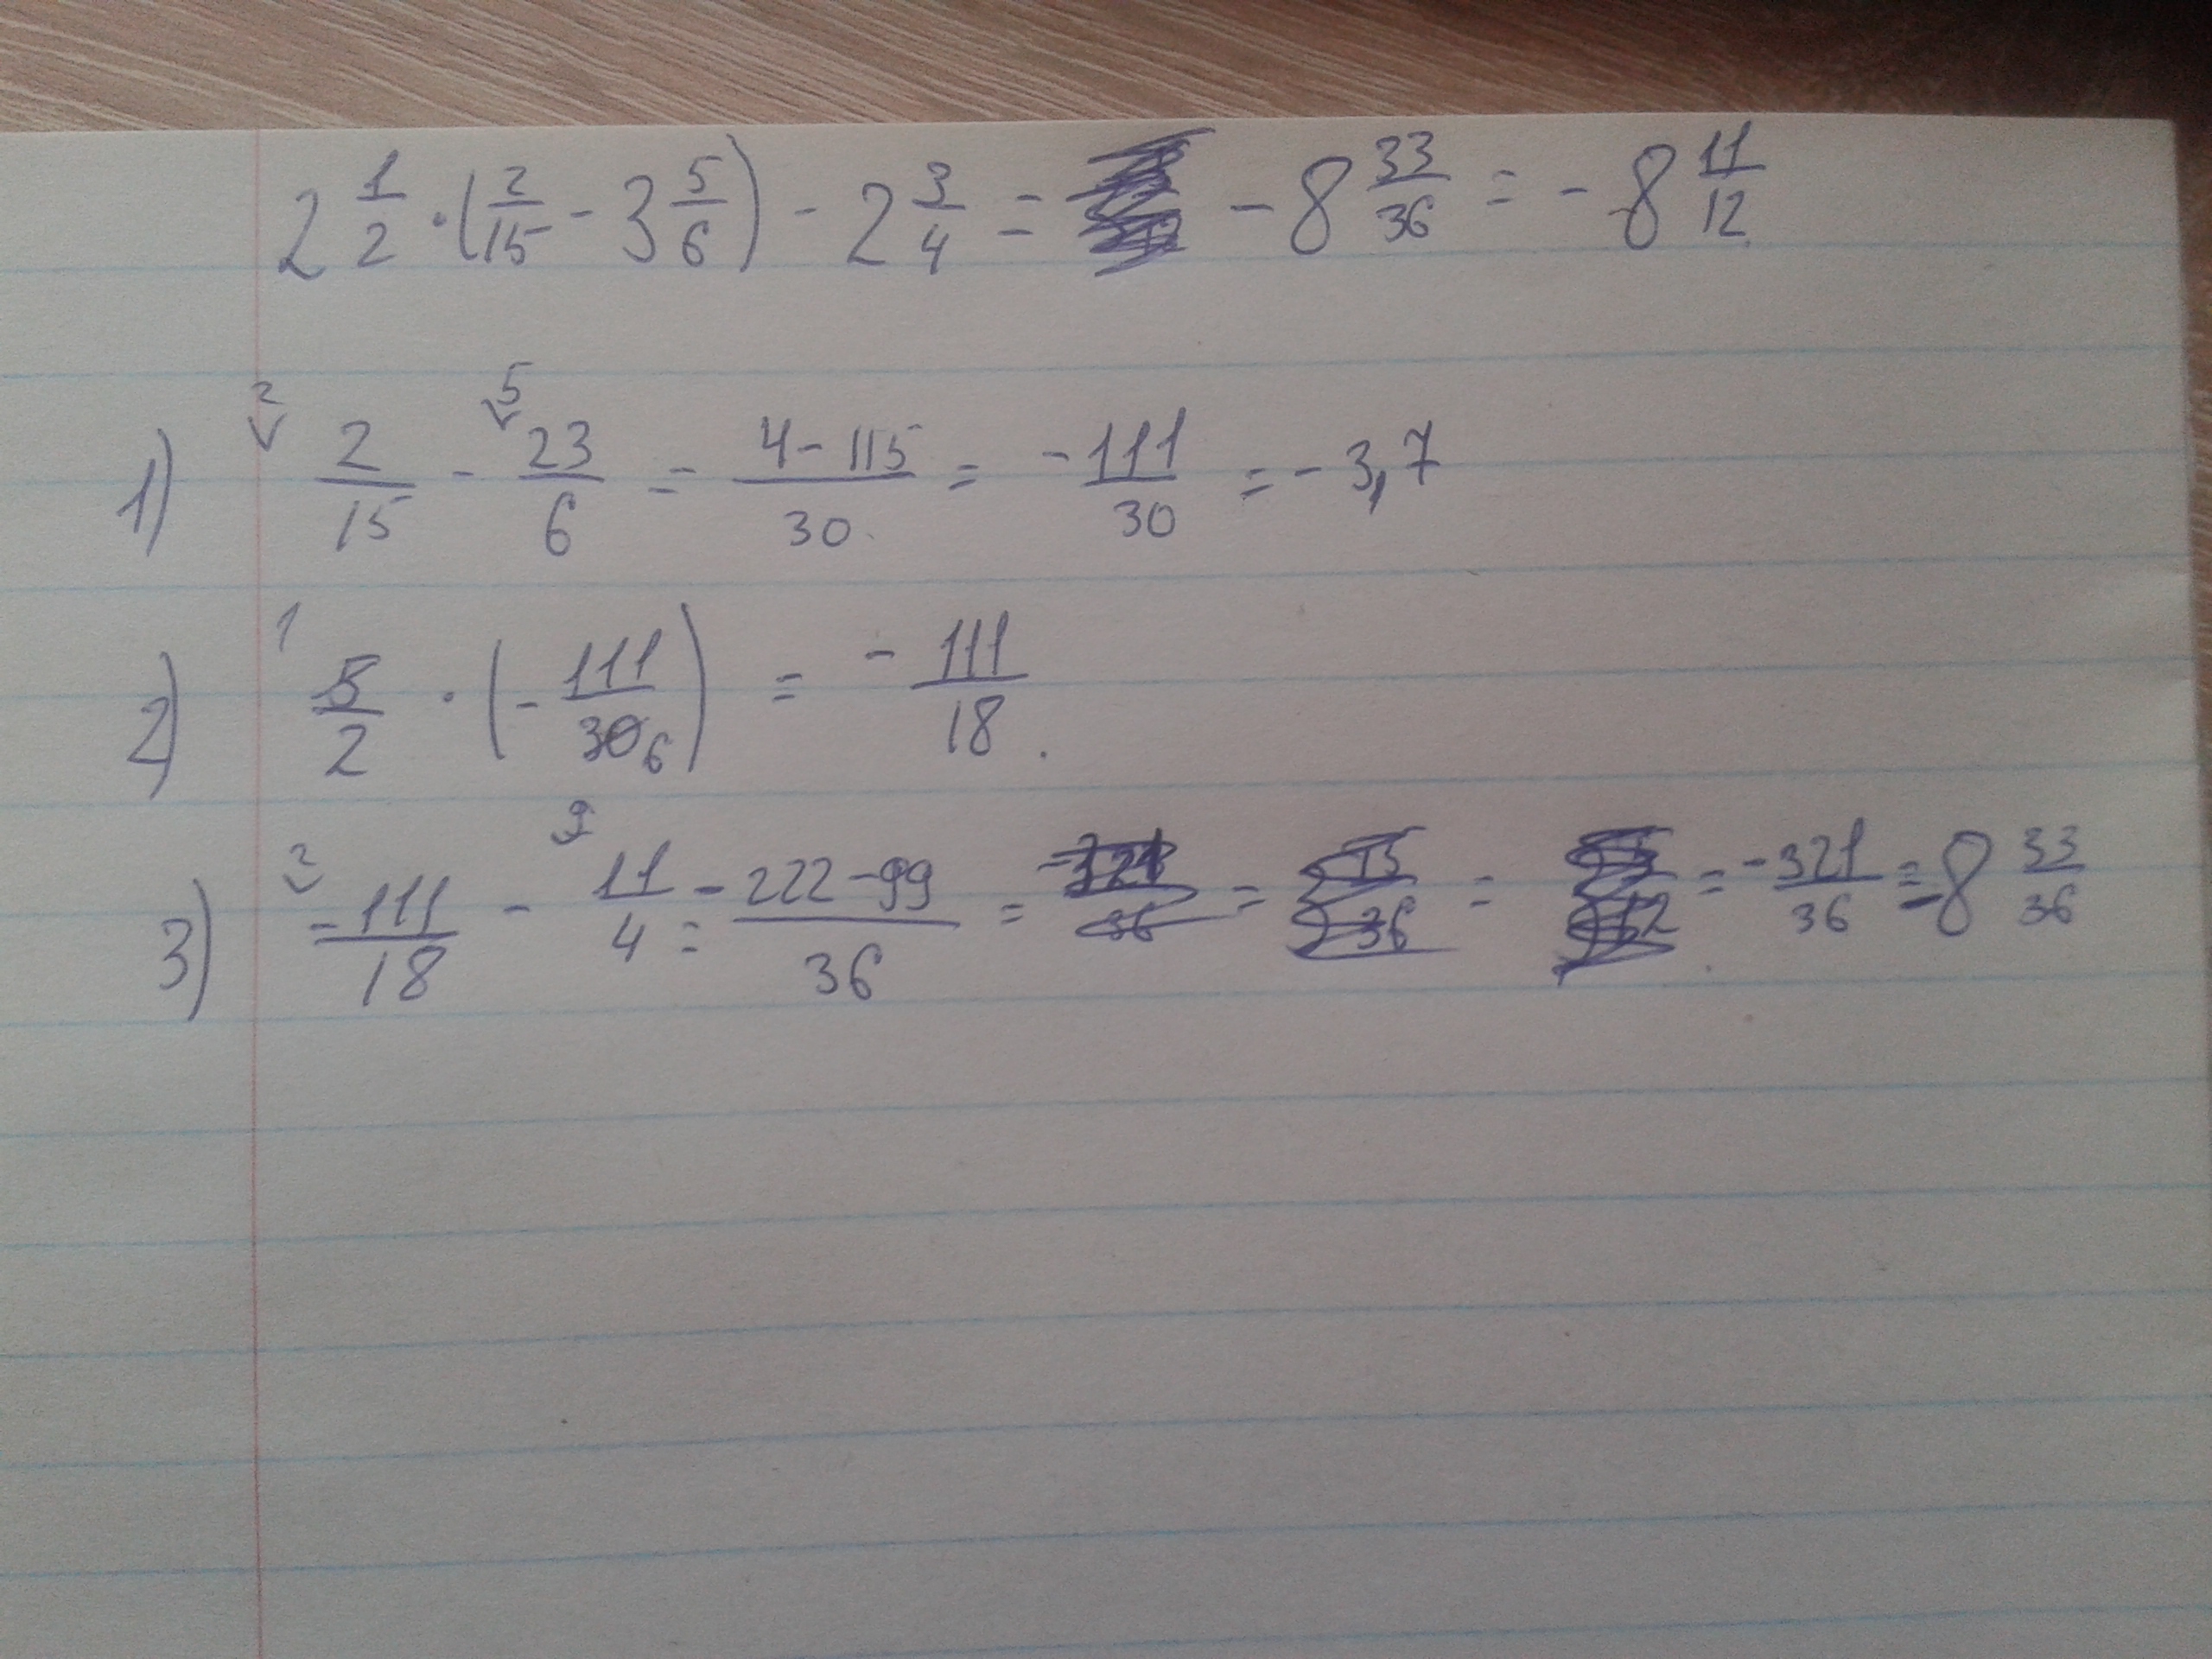 2 1/2 · (2/15 - 3 5/6) - 2 3/4 = - 8 33/36 = - 8 11/12
1) 2 2/15 - 5 23/6 = 4-115/30 = -111/30 = -3,7
2) 1 5/2 · (- 111/30 6) = - 111/18.
3) 2 -111/18 - 9 11/4 = -222-99/36 = = = = -321/36 = -8 33/36